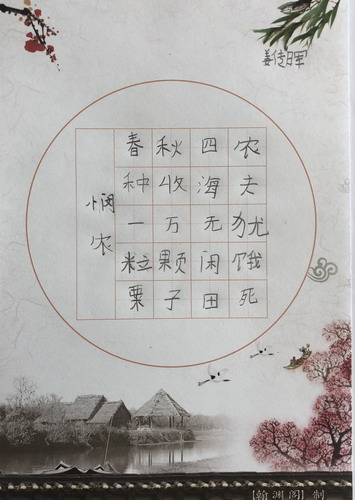 姜传晖
悯农
春种一粒粟
秋收万颗子
四海无闲田
农夫犹饿死
【翰渊阁】制